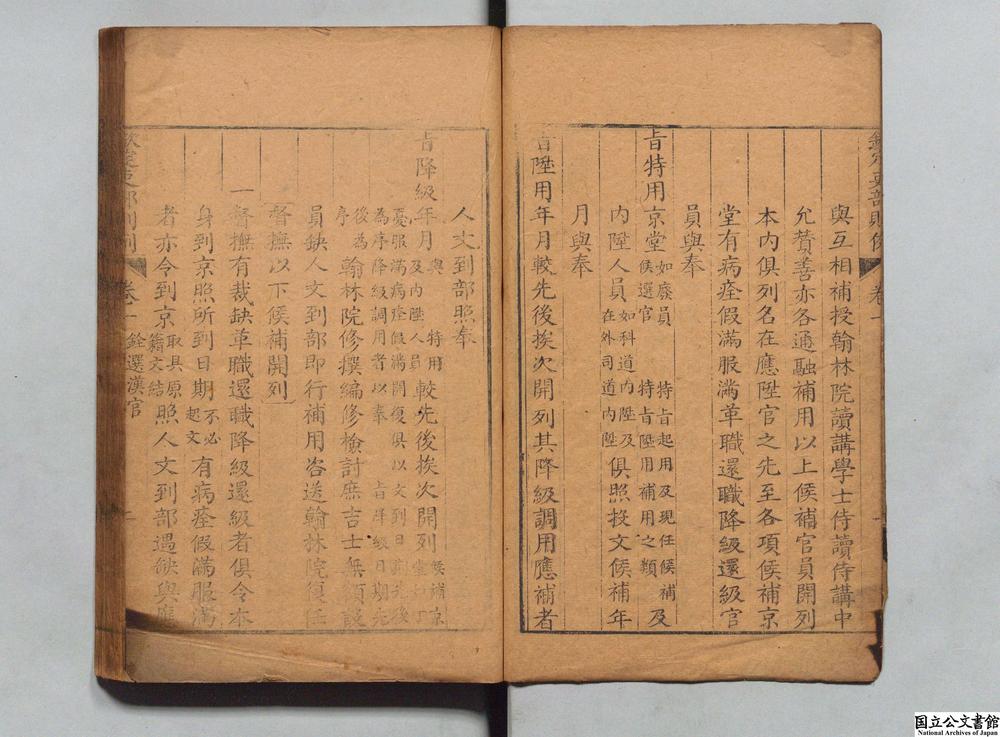 與互相補授翰林院讀講學士侍讀侍講中
允贊善亦各通融補用以上候補官員開列
本內俱列名在應陞官之先至各項候補京
堂有病痊假滿服滿革職還職降級還級官
員與奉
旨特用京堂如廢員特旨起用及現任候補候選官特旨陞用補用之類及
內陞人員如科道內陞及在外司道內陞俱照投文候補年
月與奉
旨陞用年月較先後挨次開列其降級調用應補者
人文到部照奉
旨降級年月與特用及內陞人員較先後挨次開列候補京堂丁憂服滿病痊假滿開復俱以文到日期先後為序降級調用者以奉旨降級日期先後為序
翰林院修撰編修檢討庶吉士無項設
員缺人文到部即行補用咨送翰林院復任
督撫以下候補開列
一督撫有裁缺革職還職降級還級者俱令本
身到京照所到日期不必起文有病痊假滿服滿
者亦令到京取具原籍文結照人文到部遇缺與應
卷一
銓選漢官
国立公文書館
National Archives of Japan